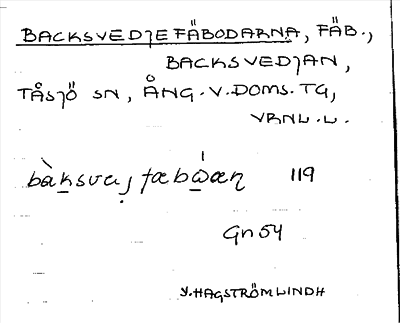 BACKSVEDJEFÄBODARNA, FÄB.,
BACKSVEDJAN,
TÅSJÖ SN, ÅNG. V. DOMS. TG,
VRNL. L.
119
Gn 54
Y. HAGSTRÖM LINDH